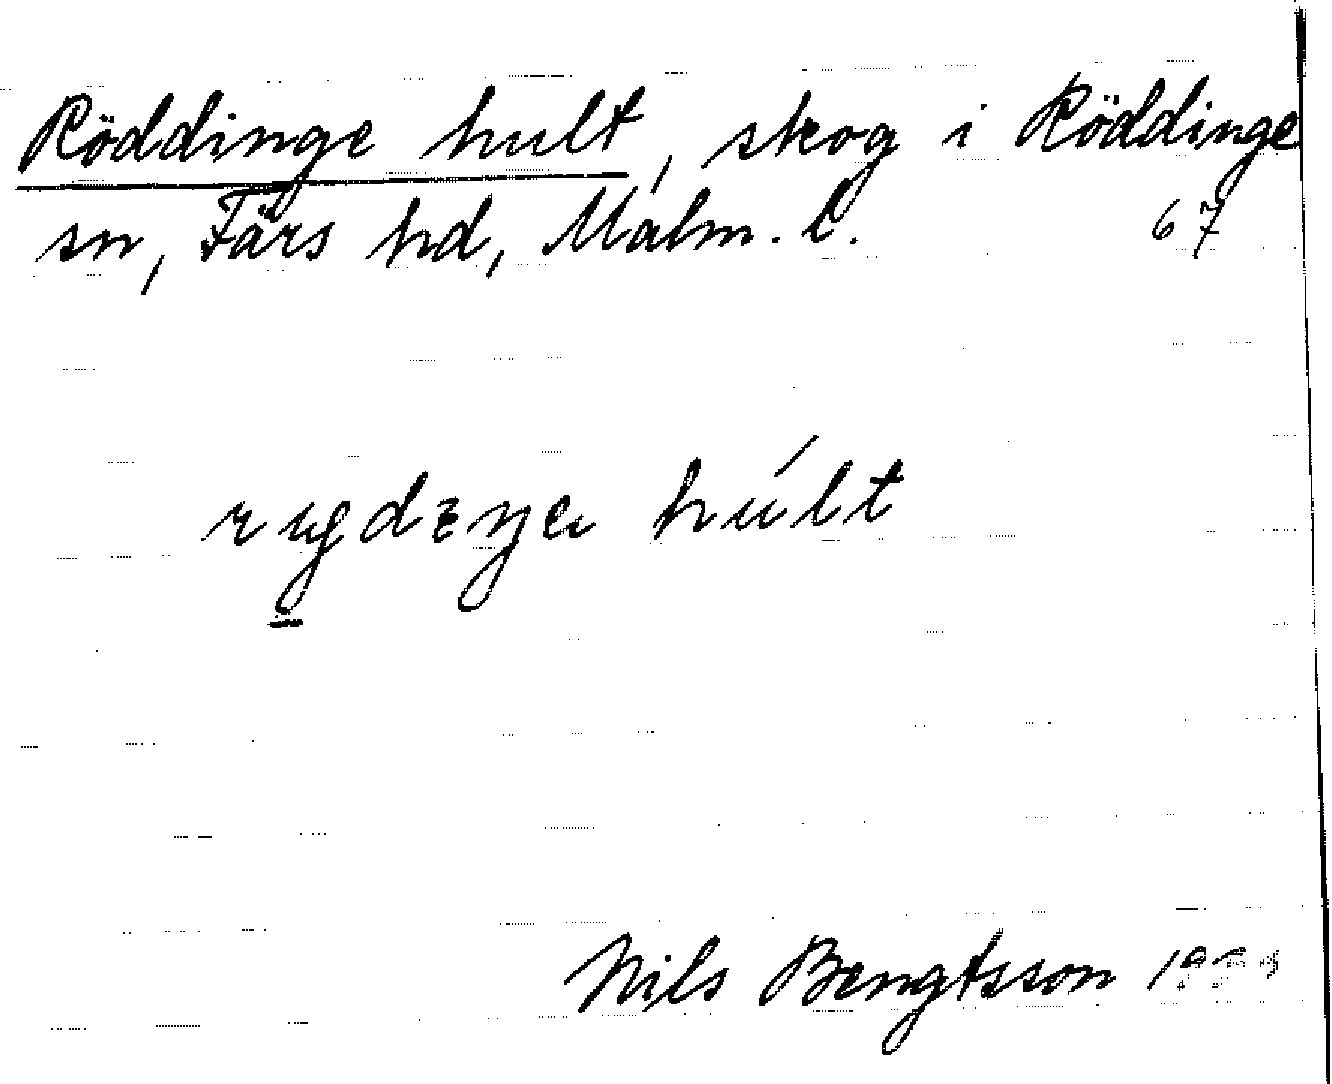 Röddinge hult, skog i Röddinge
sn, Färs hd, Malm. l.
67
hult
Nils Bengtsson